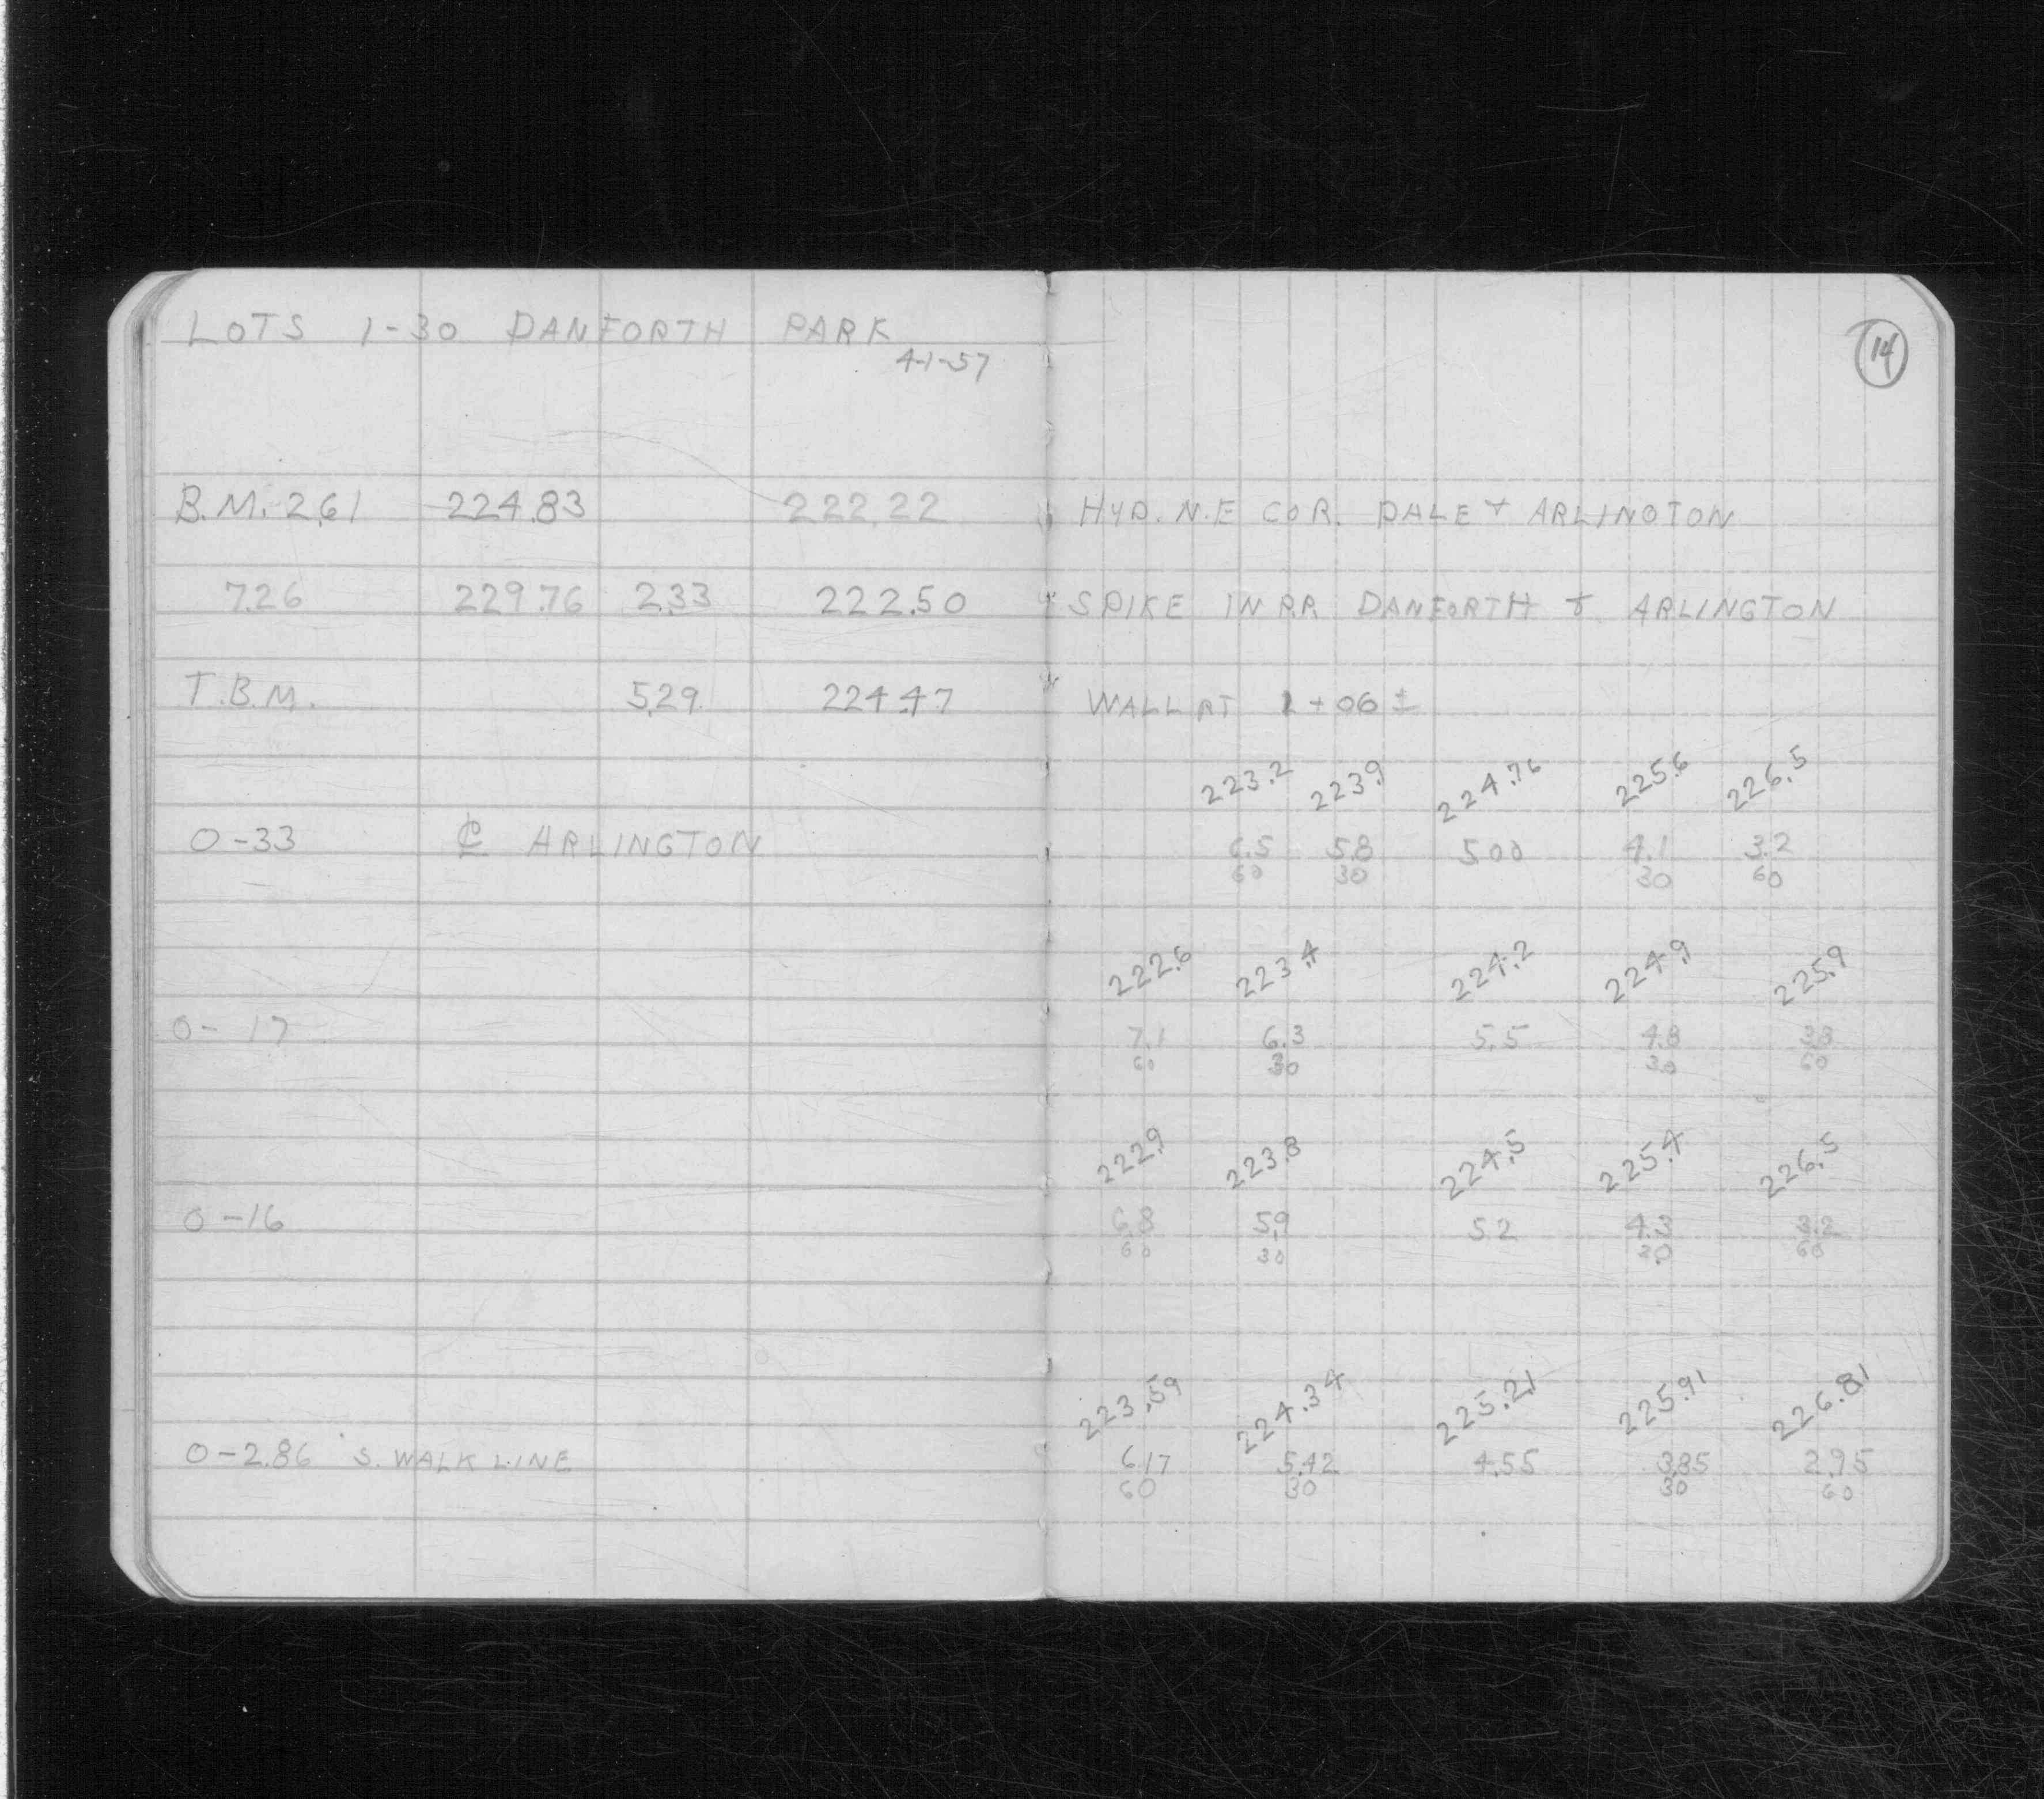 LOTS 1-30 DANFORTH PARK
4-1-57
14
B.M. 2.61 224.83 222.22 HYD. N.E COR. DALE & ARLINGTON
7.26 229.76 2.33 222.50 SPIKE IN P.P. DANFORTH & ARLINGTON
T.B.M. 5.29 224.47 WALL AT 1+06 ±
223.2 223.9 224.76 225.6 226.5
0-33 ℄ ARLINGTON 6.5 5.8 5.00 4.1 3.2
60 30 30 60
222.6 223.4 224.2 224.9 225.9
0-17 7.1 6.3 5.5 4.8 3.8
60 30 30 60
222.9 223.8 224.5 225.4 226.5
0-16 6.8 5.9 5.2 4.3 3.2
60 30 30 60
223.59 224.34 225.21 225.91 226.81
0-2.86 S. WALK LINE 6.17 5.42 4.55 3.85 2.95
60 30 30 60